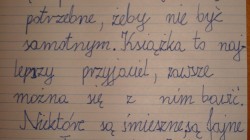 potrzebne, żeby nie być
samotnym. Książka to naj-
lepszy przyjaciel, zawsze
można się z nim bawić.
Niektóre są śmieszne, są fajne